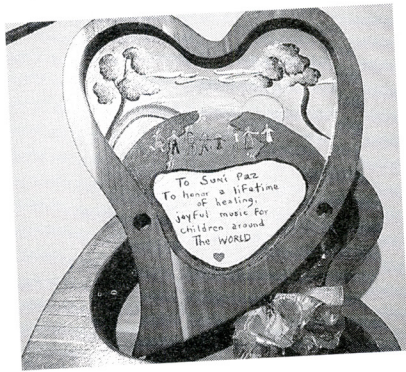 To Suni Paz
To honor a lifetime
of healing,
joyful music for
children around
The WORLD